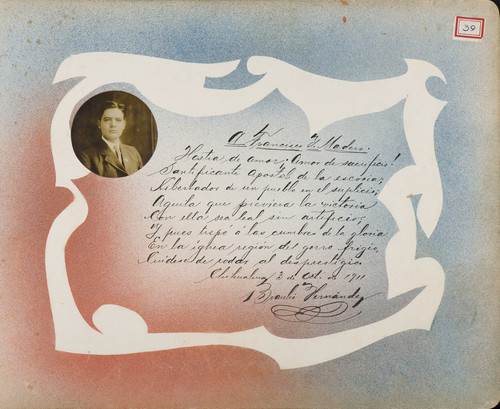 39
A Francisco I. Madero.
Hostia de amor. Amor de sacrificio!
Santificante apostol de la escoria;
Libertador de un pueblo en el suplicio,
Aguila que previera la victoria
Con ella sea leal sin artificio;
Y pues trepó á las cumbres de la gloria
En la ignea región del gorro frigio,
Cuidese de rodar al desprestigio.
Chihuahua, 2 de Oct. de 1911
Braulio Hernández